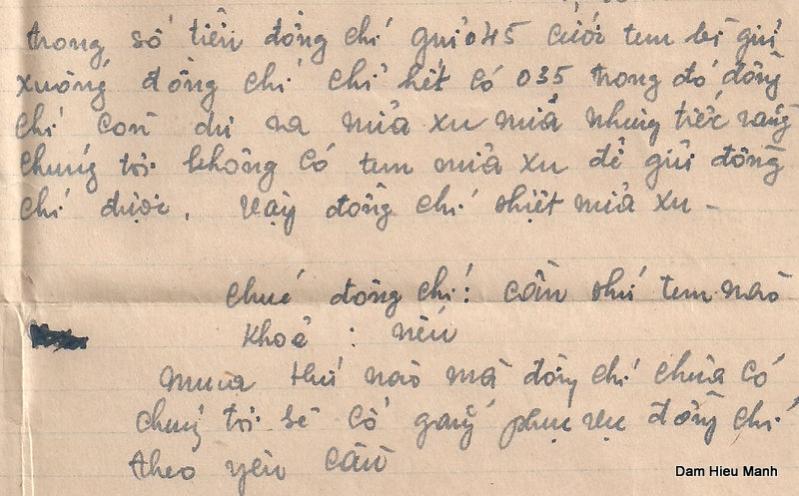 trong số tiền đồng chí gửi 045 cước tem bì gửi
xuống đồng chí chỉ hết có 035 trong đó đồng
chí còn dư ra nửa xu nữa nhưng tiếc rằng
chúng tôi không có tem nửa xu để gửi đồng
chí được. Vậy đồng chí thiệt nửa xu -
Chúc đồng chí: cần thứ tem nào
Khoẻ : nếu
mua thứ nào mà đồng chí chưa có
chúng tôi sẽ cố gắng phục vụ đồng chí
theo yêu cầu
Dam Hieu Manh